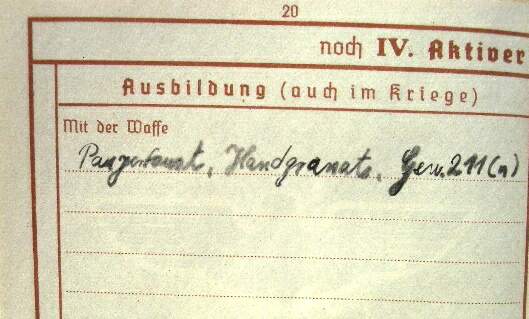 20
noch IV. Aktiver
Ausbildung (auch im Kriege)
Mit der Waffe
Panzerfaust, Handgranate, Gew. 211 (n)